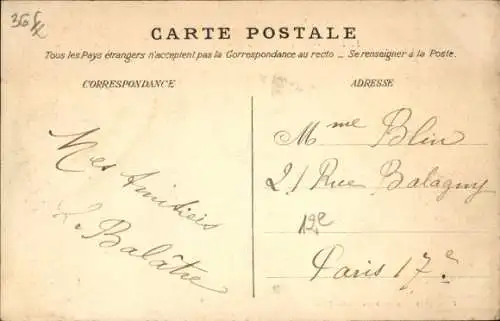 CARTE POSTALE
Tous les Pays étrangers n'acceptent pas la Correspondance au recto _ Se renseigner à la Poste.
CORRESPONDANCE
ADRESSE
Mes Amitiés
L. Balâtre
Mme Blin
21 Rue Balagny
12e
Paris 17e.